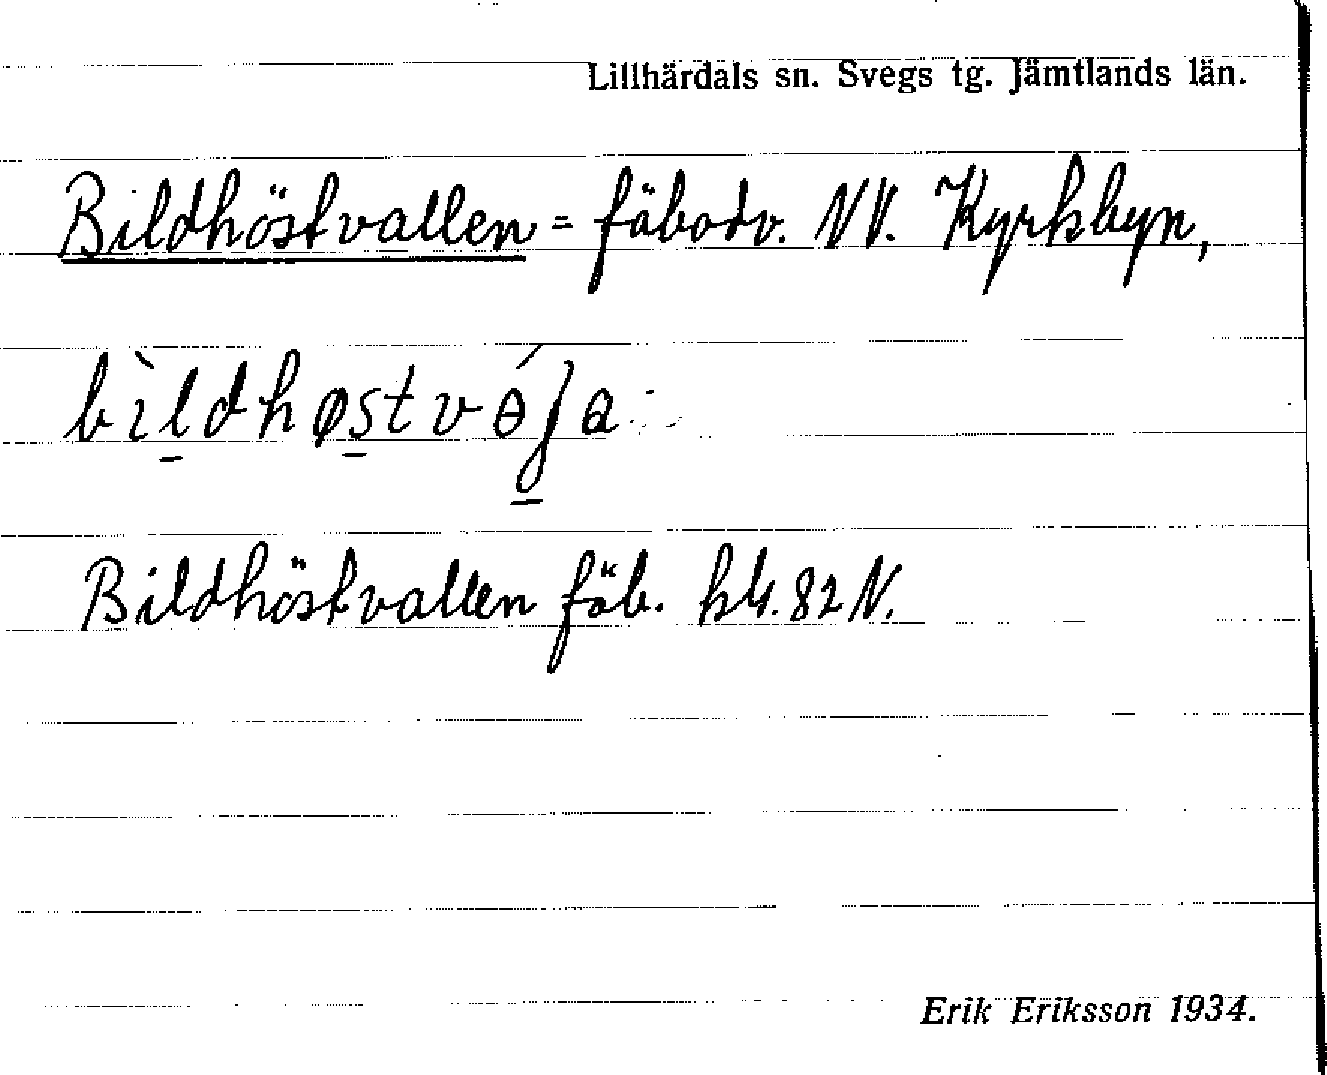 Lillhärdals sn. Svegs tg. Jämtlands län.
Bildhöstvallen = fäbodv. NV. Kyrkbyn,
bìldhøstvɵ́ʃa
Bildhöstvallen fäb. kbl. 82 N.
Erik Eriksson 1934.